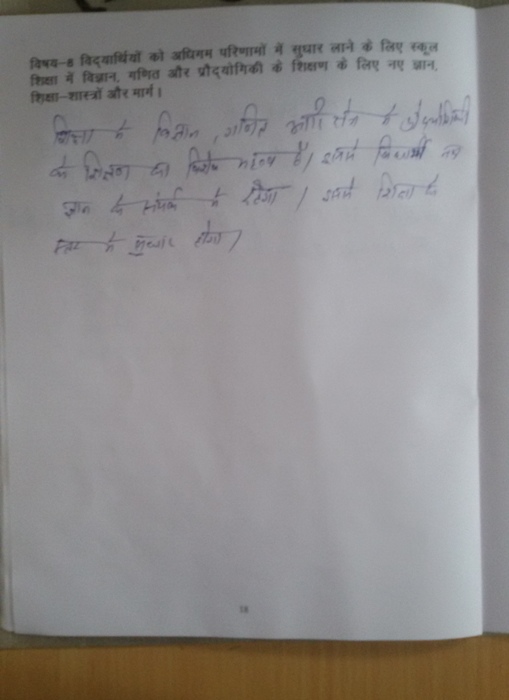 विषय-8 विद्यार्थियों को अधिगम परिणामों में सुधार लाने के लिए स्कूल
शिक्षा में विज्ञान, गणित और प्रौद्योगिकी के शिक्षण के लिए नए ज्ञान,
शिक्षा-शास्त्रों और मार्ग।
शिक्षा मे विज्ञान, गणित के प्रौद्योगिकी
के शिक्षण का विशेष महत्व है। इससे विद्यार्थी नए
ज्ञान के संपर्क मे रहेगा। इससे शिक्षा के
स्तर मे सुधार होगा।
18